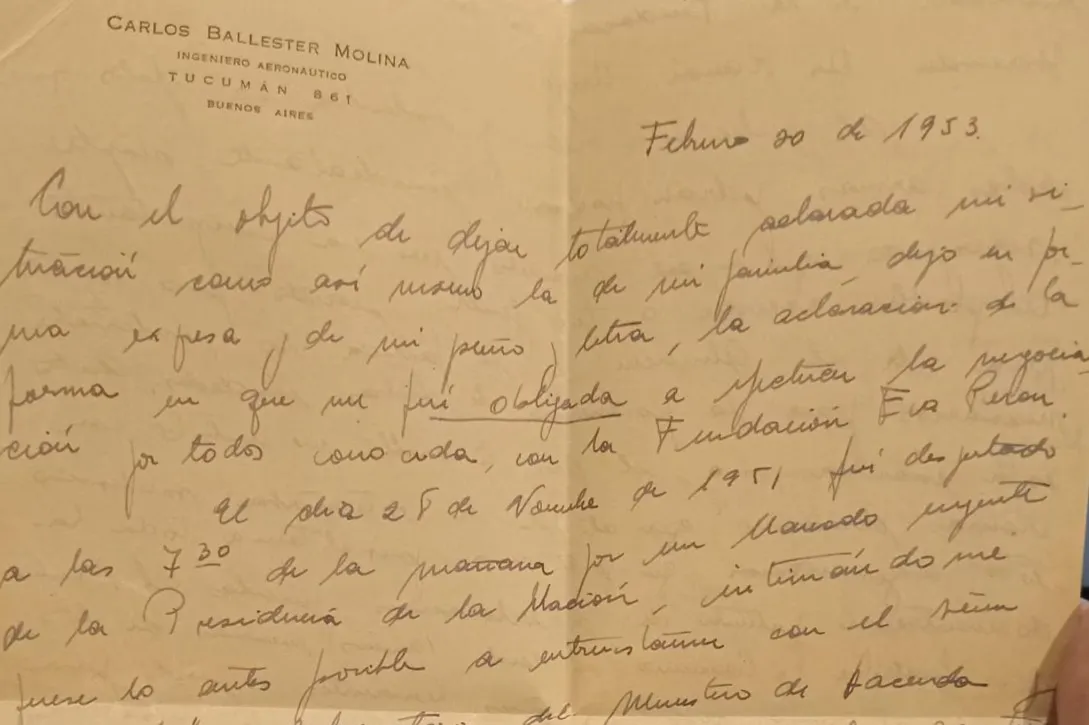 CARLOS BALLESTER MOLINA
INGENIERO AERONAUTICO
TUCUMÁN 861
BUENOS AIRES
Febrero 20 de 1953.
Con el objeto de dejar totalmente aclarada mi si-
tuación como así mismo la de mi familia, dejo en for-
ma expresa, de mi puño y letra, la aclaración de la
forma en que me fuí obligada a efectuar la negocia-
ción por todos conocida, con la Fundación Eva Peron.
El dia 28 de Novembre de 1951 fuí despertado
a las 7 30 de la mañana por un llamado urgente
de la Presidencia de la Nación, intimándome
fuese lo antes posible a entrevistarme con el señor
del Ministro de Hacienda